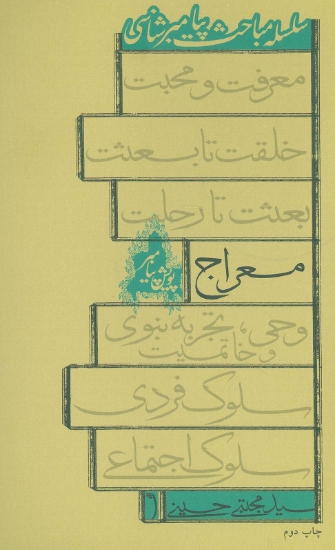 سلسله مباحث پیامبرشناسی
معرفت و محبت
خلقت تا بعثت
بعثت تا رحلت
معراج
پویش پیامبر
وحی، تجربه نبوی
و خاتمیت
سلوک فردی
سلوک اجتماعی
سید مجتبی حسینی
۶
چاپ دوم